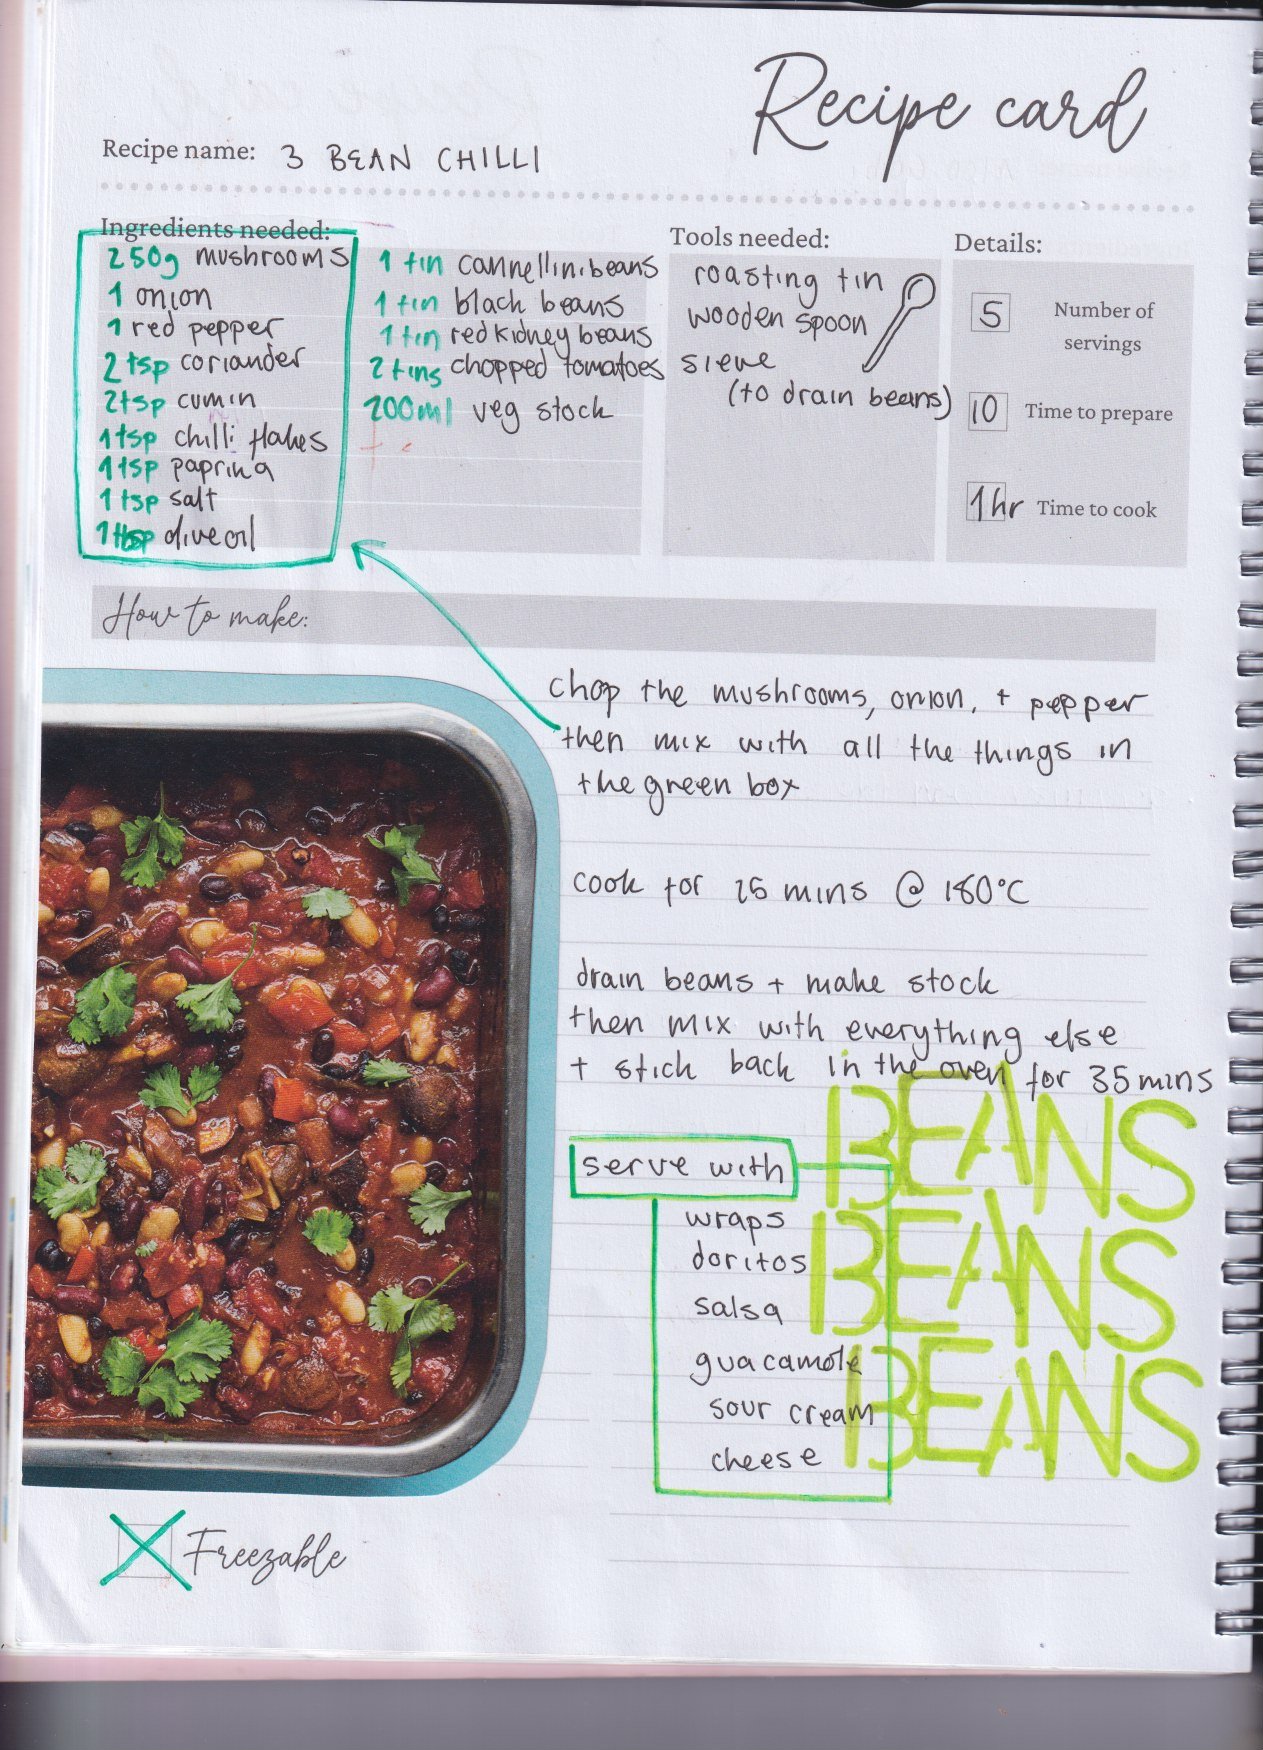 Recipe card
Recipe name: 3 BEAN CHILLI
Ingredients needed:
250g mushrooms
1 onion
1 red pepper
2 tsp coriander
2tsp cumin
1tsp chilli flakes
1tsp paprika
1 tsp salt
1 tbsp olive oil
1 tin cannellini beans
1 tin black beans
1 tin red kidney beans
2 tins chopped tomatoes
200ml veg stock
Tools needed:
roasting tin
wooden spoon
sieve
(to drain beans)
Details:
5 Number of
servings
10 Time to prepare
1hr Time to cook
How to make:
chop the mushrooms, onion, + pepper
then mix with all the things in
the green box
cook for 25 mins @ 180°C
drain beans + make stock
then mix with everything else
+ stick back in the oven for 35 mins
serve with
wraps
doritos
salsa
guacamole
sour cream
cheese
BEANS
BEANS
BEANS
Freezable